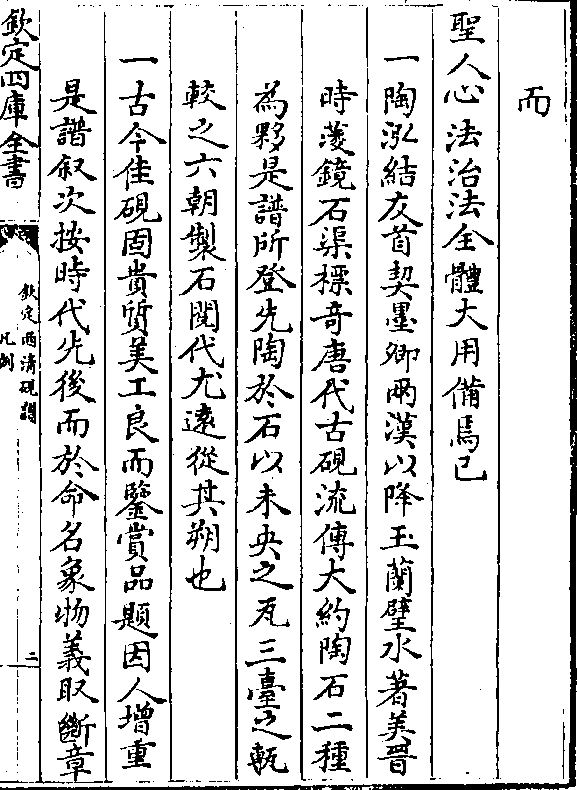 而
聖人心法治法全體大用備焉已
一陶泓結友首契墨卿兩漢以降玉蘭璧水著美晉
時菱鏡石渠標奇唐代古硯流傳大約陶石二種
為夥是譜所登先陶於石以未央之瓦三臺之甎
較之六朝製石閱代尤遠從其朔也
一古今佳硯固貴質美工良而鑒賞品題因人增重
是譜叙次按時代先後而於命名象物義取斷章
欽定四庫全書
欽定西清硯譜
凡例
二